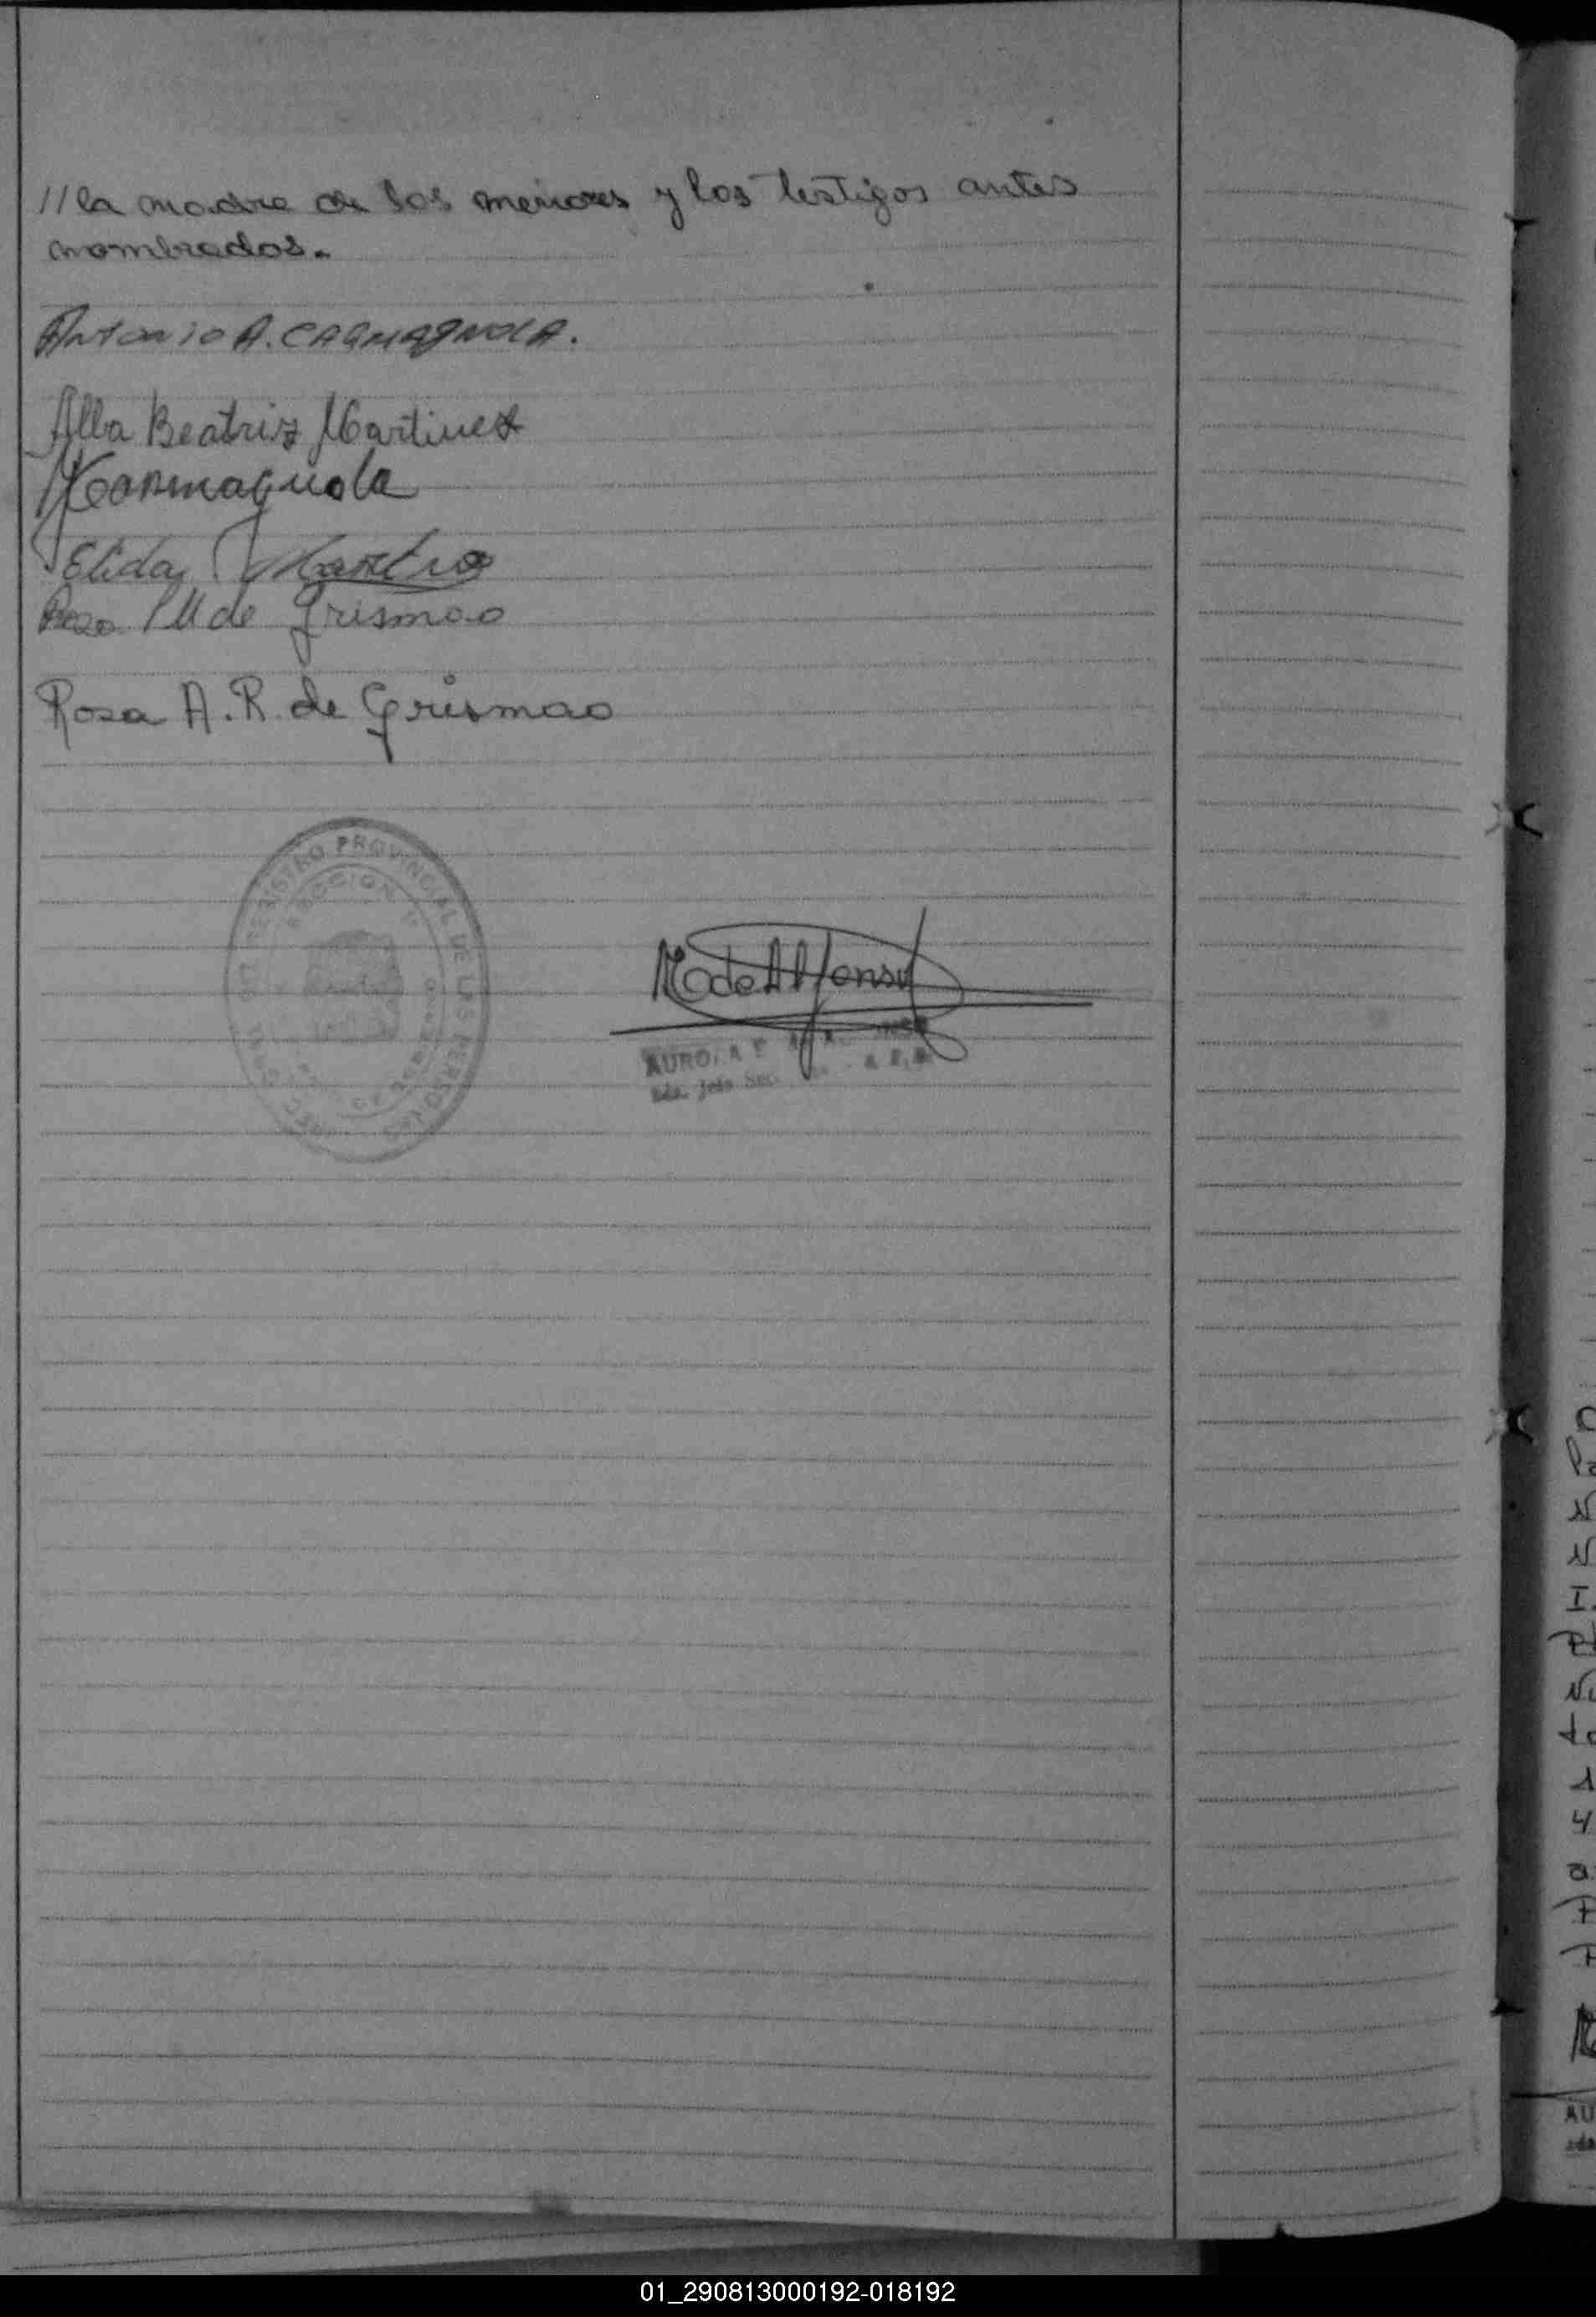 //la madre de los menores y los testigos antes
nombrados.
Antonio A. CARMAGNOLA.
Alba Beatriz Martinez
Carmagnola
Elida
M de Grismao
Rosa A. R. de Grismao
REGISTRO PROVINCIAL DE LAS PERSONAS
SECCION
R de Alfonso
AURO
Jefe
01_290813000192-018192